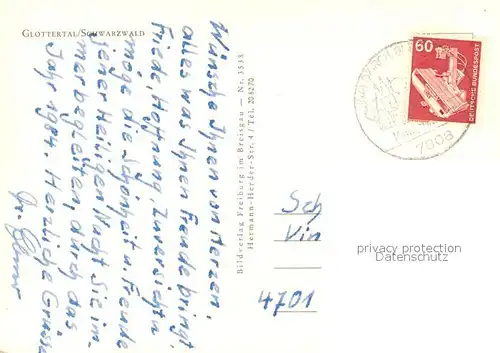 GLOTTERTAL/SCHWARZWALD
Wünsche Ihnen von Herzen,
alles was Ihnen Freude bringt.
Friede, Hoffnung, Zuversicht
möge die Schönheit u. Freude
jener Heiligen Nacht Sie im-
mer begleiten, durch das
Jahr 1984. Herzliche Grüsse
Bildverlag Freiburg im Breisgau — Nr. 3538
Hermann-Herder-Str. 4 / Tel. 208270
60
DEUTSCHE BUNDESPOST
7808
Sch
Vin
4701
privacy protection
Datenschutz